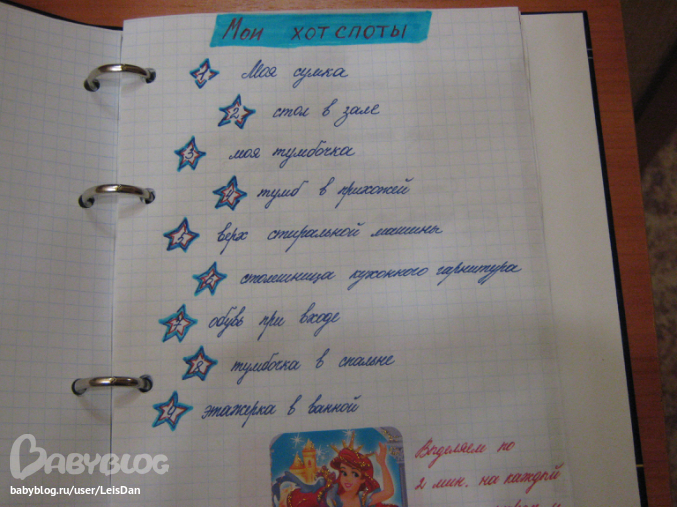 Мои хот споты
1 Моя сумка
2 стол в зале
3 моя тумбочка
4 тумб в прихожей
5 верх стиральной машины
6 столешница кухонного гарнитура
7 обувь при входе
8 тумбочка в спальне
9 этажерка в ванной
Выделяем по
2 мин. на каждой
BABYBLOG
babyblog.ru/user/LeisDan